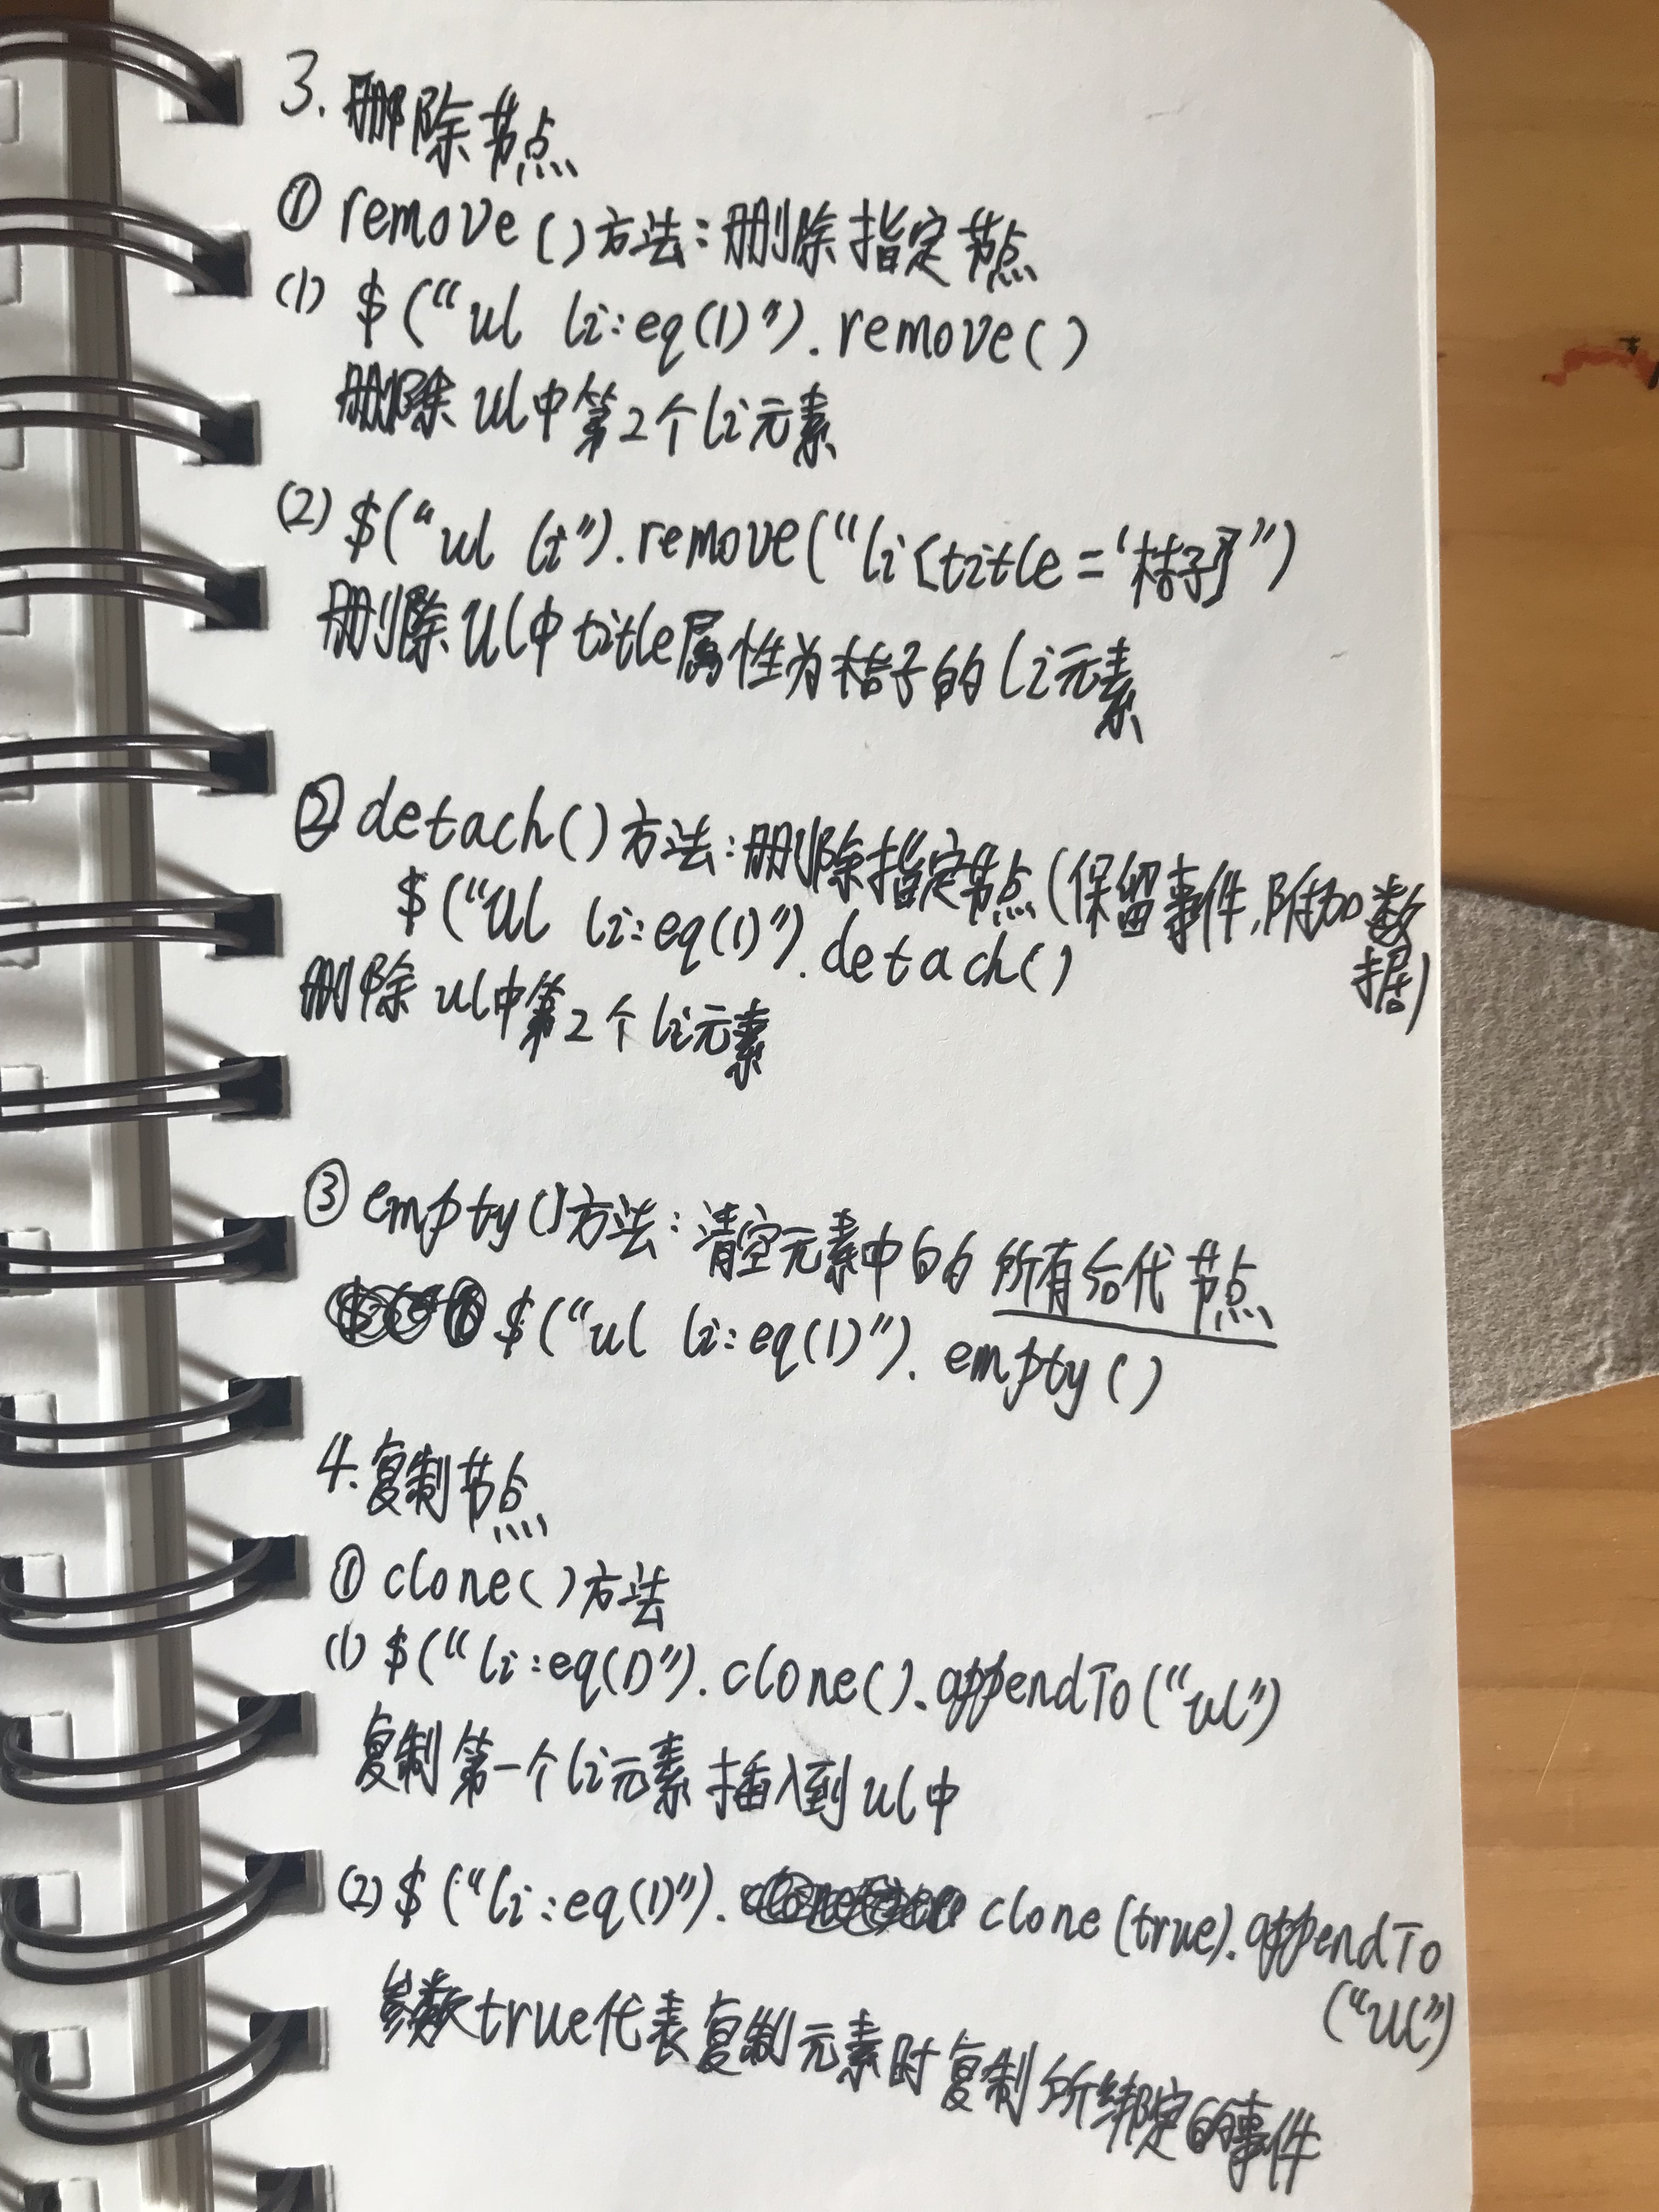 3. 删除节点
① remove()方法:删除指定节点
(1) $("ul li:eq(1)").remove()
删除ul中第2个li元素
(2) $("ul li").remove("li[title='桔子']")
删除ul中title属性为桔子的li元素
② detach()方法:删除指定节点(保留事件,附加数
据)
$("ul li:eq(1)").detach()
删除ul中第2个li元素
③ empty()方法:清空元素中的所有后代节点
$("ul li:eq(1)").empty()
4.复制节点
① clone()方法
(1) $("li:eq(1)").clone().appendTo("ul")
复制第一个li元素插入到ul中
(2) $("li:eq(1)"). clone(true).appendTo
("ul")
参数true代表复制元素时复制所绑定的事件